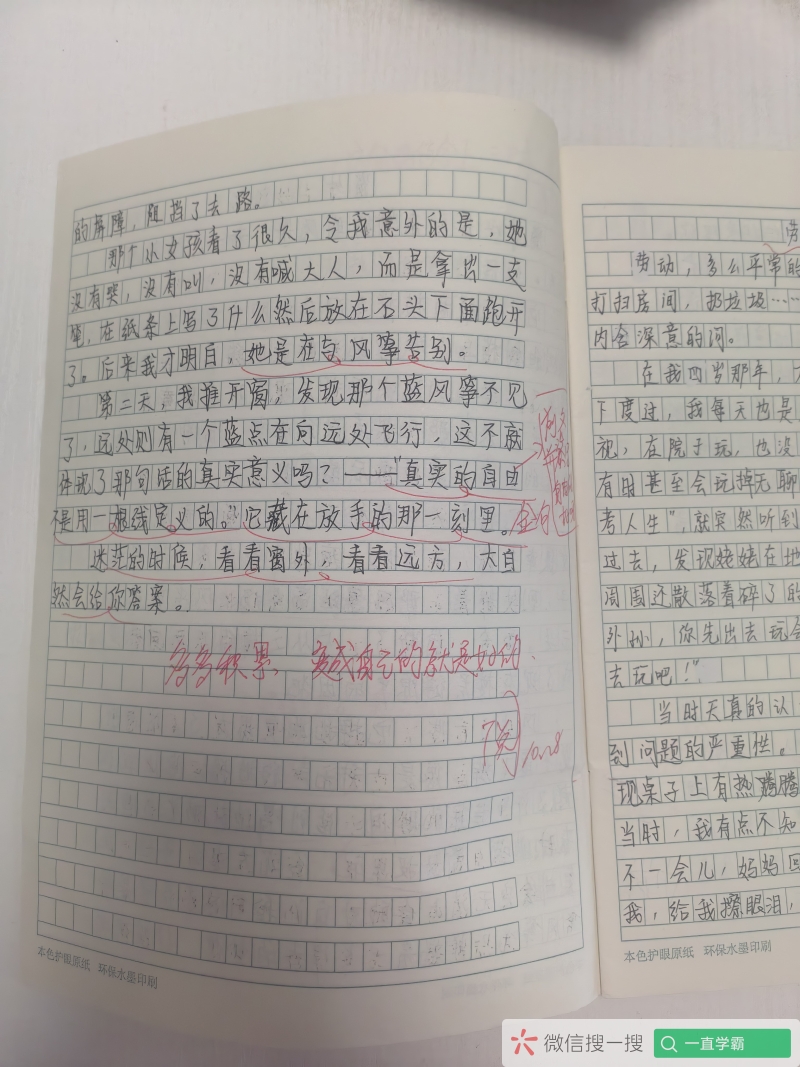 的屏障，阻挡了去路。
那个小女孩看了很久，令我意外的是，她
没有哭，没有叫，没有喊大人，而是拿出一支
笔，在纸条上写了什么然后放在石头下面跑开
了。后来我才明白，她是在与风筝告别。
第二天，我推开窗，发现那个蓝风筝不见
了，远处则有一个蓝点在向远处飞行，这不就
体现了那句话的真实意义吗？——“真实的自由
不是用一根线定义的。”它藏在放手的那一刻里。
金句
迷茫的时候，看看窗外，看看远方，大自
然会给你答案。
多多积累 变成自己的就是好的.
10.28
本色护眼原纸 环保水墨印刷
劳
劳动，多么平常的
打扫房间，扔垃圾……
内含深意的词。
在我四岁那年，
下度过，我每天也是
视，在院子玩，也没
有时甚至会玩掉无聊
考人生”，就突然听到
过去，发现姥姥在地
周围还散落着碎了的
外孙，你先出去玩会
去玩吧！”
当时天真的认
到问题的严重性。
现桌子上有热腾腾
当时，我有点不知
不一会儿，妈妈回
我，给我擦眼泪，
本色护眼原纸 环保水墨印刷
微信搜一搜
一直学霸